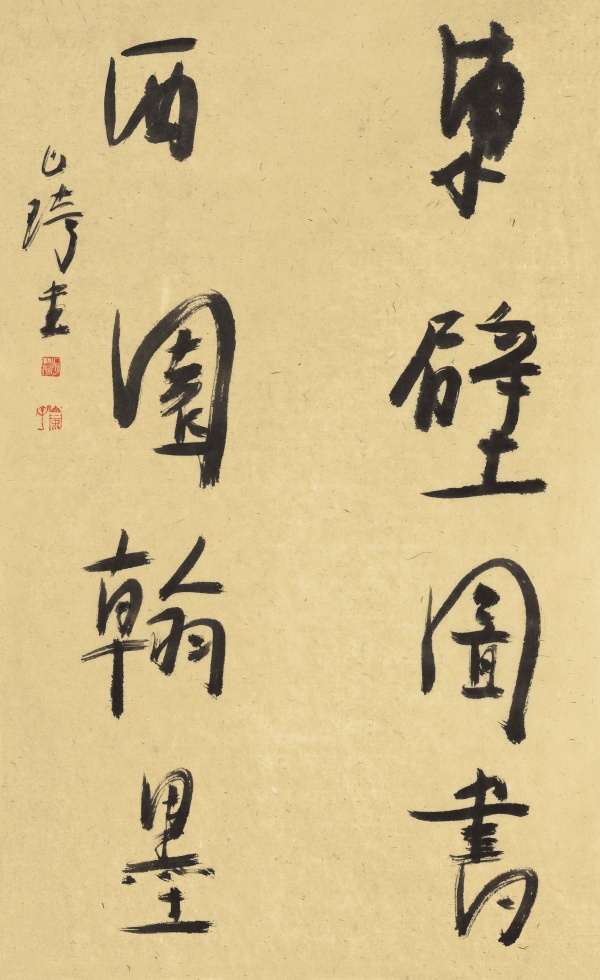 東壁圖書
西園翰墨
山琦書